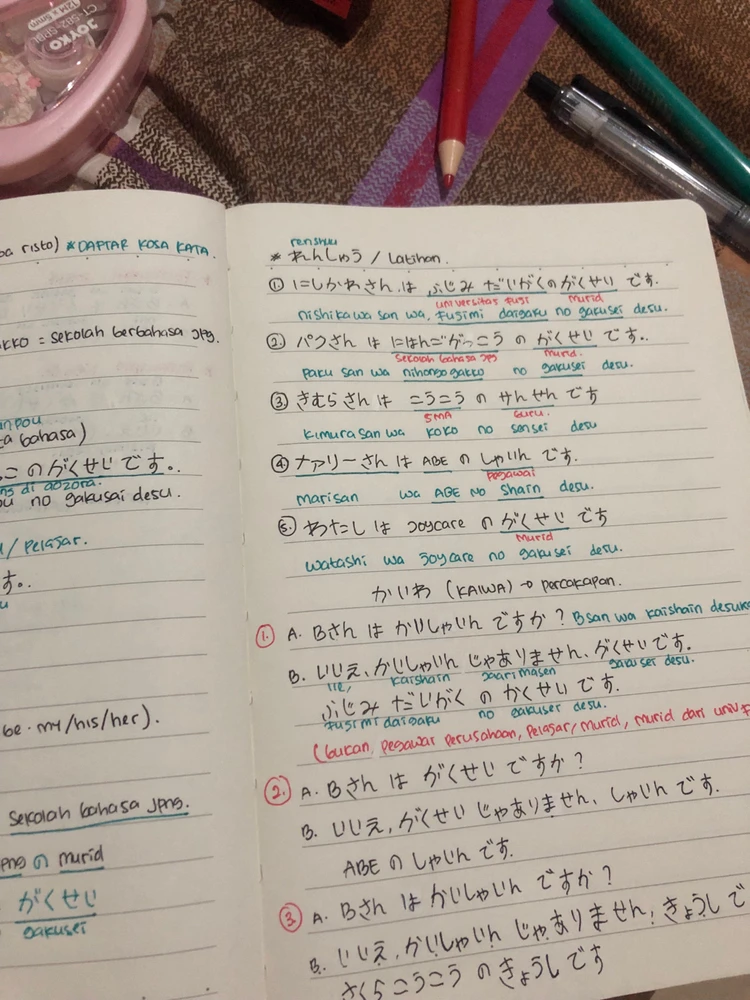 JOYKO
CT-582-6PBL
12M x 5mm
risto) *DAPTAR KOSA KATA.
KKO = sekolah berbahasa JPG.
bahasa)
のがくせいです。.
di aozora.
no gakusai desu.
/ Pelajar.
す。.
be. my/his/her).
sekolah bahasa JPng.
の murid
がくせい
gakusei
renshuu
* れんしゅう / Latihan.
① にしかわさん.は ふじみ だいがくのがくせい です.
universitas fuji murid
nishikawa san wa, fusimi daigaku no gakusei desu.
② パクさんは にほんごがっこう の がくせい です..
Sekolah bahasa JPG murid.
paku san wa nihongogakko no gakusei desu.
③ きむらさんは こうこう の せんせん です
SMA Guru.
kimura san wa koko no sensei desu
④ ナァリーさんは ABE の しゃいん です.
pegawai
marisan wa ABE NO shain desu.
⑤ わたし は Joycare の がくせい です
Murid
watashi wa joycare no gakusei desu.
かいわ (KAIWA) → percakapan.
1. A. Bさん は かいしゃいん ですか? Bsan wa kaishain desuka
B. いいえ、かいしゃいん じゃありません、がくせいです.
iie, kaishain jaarimasen gakusei desu.
ふじみ だいがく の がくせい です.
fusimi daigaku no gakusei desu.
(bukan, pegawai perusahaan, pelajar/murid, murid dari univ
2. A. Bさん は がくせい ですか?
B. いいえ、がくせい じゃありません、しゃいん です.
ABE の しゃいん です.
3. A. Bさん は かいしゃいん ですか?
B. いいえ、かいしゃいん じゃありません、きょうし で
さくらこうこう の きょうし です